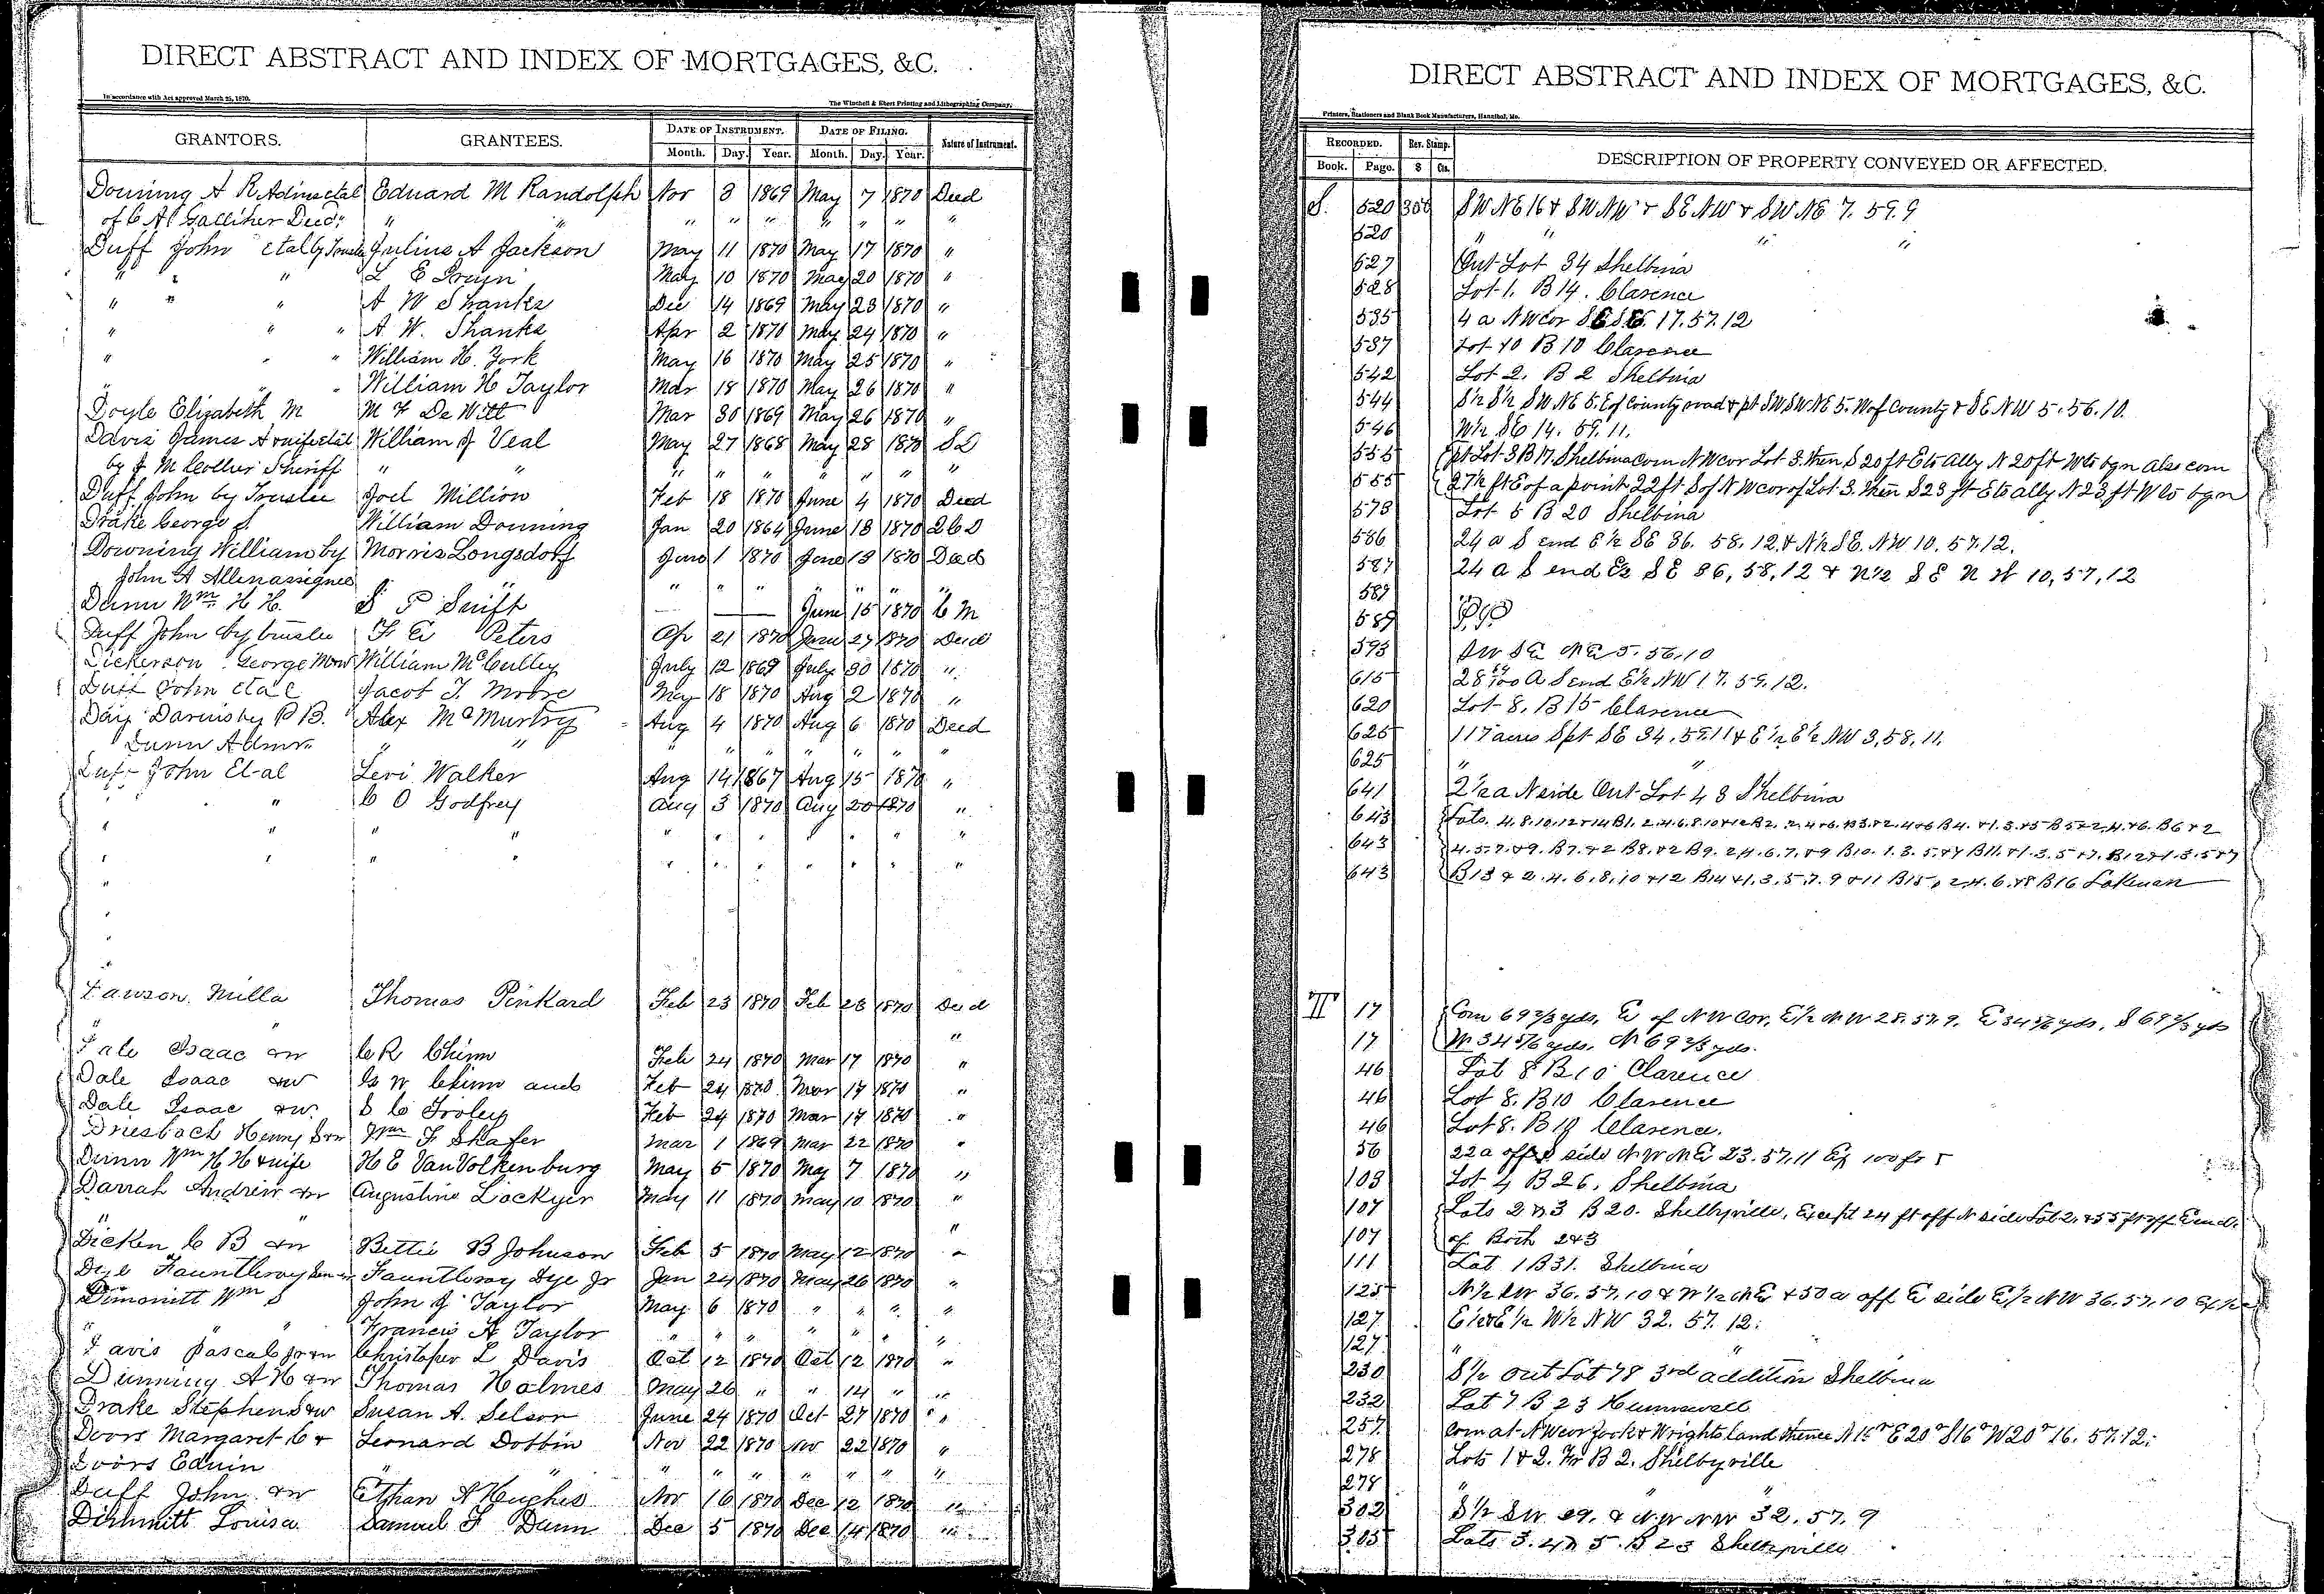 DIRECT ABSTRACT AND INDEX OF MORTGAGES, &C.
In accordance with Act approved March 25, 1870.
The Winchell & Ebert Printing and Lithographing Company,
GRANTORS. GRANTEES. DATE OF INSTRUMENT. DATE OF FILING. Nature of Instrument.
Month. Day. Year. Month. Day. Year.
Downing A R Admr etal Edward M Randolph Nov 3 1869 May 7 1870 Deed
of C A Galliher Decd " " " " " " " " "
Duff John etal by Trustee Julius A Jackson May 11 1870 May 17 1870 "
" " " L E May 10 1870 May 20 1870 "
" " " A M Shanks Dec 14 1869 May 23 1870 "
" " " A W. Shanks Apr 2 1870 May 24 1870 "
" " " William H. York May 16 1870 May 25 1870 "
" " " William H Taylor Mar 18 1870 May 26 1870 "
Doyle Elizabeth M M F De Witt Mar 30 1869 May 26 1870 "
Davis James A & wife etal William J Veal May 27 1868 May 28 1870 S D
by J M Collier Sheriff " " " " " " " " "
Duff John by Trustee Joel Million Feb 18 1870 June 4 1870 Deed
Drake George S. William Downing Jan 20 1864 June 13 1870 2 C D
Downing William by Morris Longsdorf June 1 1870 June 13 1870 Deed
John A Allen assignee " " " " " " " "
Dunn Wm H H. S P Swift June 15 1870 C M
Duff John by trustee F E Peters Ap 21 1870 June 27 1870 Deed
Dickerson George William McCulley July 12 1869 July 30 1870 "
Duff John etal Jacob T. Moore May 18 1870 Aug 2 1870 "
Day Darius by P B. Alex McMurtry Aug 4 1870 Aug 6 1870 Deed
Dunn Admr. " " " " " " " " "
Duff John Et-al Levi Walker Aug 14 1867 Aug 15 1870 "
" " C O Godfrey Aug 3 1870 Aug 20 1870 "
" " " " " " " " " " "
" " " " " " " " " " "
"
"
"
"
Dawson Milla Thomas Pinkard Feb 23 1870 Feb 28 1870 Deed
" " "
Dale Isaac &w C R Chinn Feb 24 1870 Mar 17 1870 "
Dale Isaac &w G W Chinn and Feb 24 1870 Mar 17 1870 "
Dale Isaac &w. S C Feb 24 1870 Mar 17 1870 "
Driesbach Henry S &w Wm F Shafer Mar 1 1869 Mar 22 1870 "
Dunn Wm H H & wife H E Van Volkenburg May 5 1870 May 7 1870 "
Darrah Andrew &w Augustine Lockyer May 11 1870 May 10 1870 "
" "
Dicken C B &w Bettie B Johnson Feb 5 1870 May 12 1870 "
Dye Fauntleroy Fauntleroy Dye Jr Jan 24 1870 May 26 1870 "
Dimmitt Wm S John J Taylor May 6 1870 " " " "
" " Francis A Taylor " " " " " " "
Davis Pascal Jr &w Christopher L Davis Oct 12 1870 Oct 12 1870 "
Dunning A H &w Thomas Holmes May 26 " " 14 " "
Drake Stephen S &w Susan A. Selsor June 24 1870 Oct 27 1870 "
Doors Margaret C & Leonard Dobbin Nov 22 1870 Nov 22 1870 "
Doors Edwin " " " " " " " " "
Duff John &w Ethan A Hughes Nov 16 1870 Dec 12 1870 "
Dimmitt Louisa Samuel F Dunn Dec 5 1870 Dec 14 1870 "
DIRECT ABSTRACT AND INDEX OF MORTGAGES, &C.
Printers, Stationers and Blank Book Manufacturers, Hannibal, Mo.
RECORDED. Rev. Stamp. DESCRIPTION OF PROPERTY CONVEYED OR AFFECTED.
Book. Page. $ Cts.
S. 520 300 SW NE 16 & SW NW & SE NW & SW NE 7. 59. 9
520 " " " "
527 Out Lot 34 Shelbina
528 Lot 1. B 14. Clarence
535 4 a NW cor SE SE. 17. 57. 12
537 Lot 10 B 10 Clarence
542 Lot 2. B 2 Shelbina
544 S½ S½ SW NE 5. E of County road & pt SW SW NE 5. W of County & SE NW 5. 56. 10.
546 W½ SE 14. 59. 11.
555 pt Lot 3 B 17. Shelbina com NW cor Lot 3. then S 20 ft E to Ally N 20 ft W to bgn also com
555 27½ ft E of a point 22 ft S of NW cor of Lot 3. then S 23 ft E to ally N 23 ft W to bgn
573 Lot 5 B 20 Shelbina
586 24 a S end E½ SE 36. 58. 12. & N½ SE. NW 10. 57. 12.
587 24 a S end E½ SE 36, 58, 12 & N½ SE NW 10, 57, 12
587 " "
589 P.P
593 SW SE NE 5. 56. 10
615 28 A S end E½ NW 17. 59. 12.
620 Lot 8, B 15 Clarence
625 117 acres S pt SE 34. 59. 11 & E½ E½ NW 3, 58, 11.
625 " "
641 2½ a N side Out Lot 43 Shelbina
643 Lots. 4. 8. 10. 12 & 14 B1. 2. 4. 6. 8. 10 & 12 B2. 2. 4 & 6. B3. & 2. 4 & 6 B4. & 1. 3. & 5 B5 & 2. 4. & 6. B6 & 2
643 4. 5. 7. & 9. B7. & 2 B8. & 2 B9. 2. 4. 6. 7. & 9 B10. 1. 3. 5. & 7 B11. & 1. 3. 5 & 7. B12 & 1. 3. 5 & 7
643 B13 & 2. 4. 6. 8. 10 & 12 B14 & 1. 3. 5. 7. 9 & 11 B15. 2. 4. 6. & 8 B16 Lakenan
T 17 Com 69 2/3 yds, E of NW cor, E½ NW 28. 57. 9. E 34 5/6 yds, S 69 2/3 yds
17 W 34 5/6 yds, N 69 2/3 yds.
46 Lot 8 B 10 Clarence
46 Lot 8. B 10 Clarence
46 Lot 8. B 10 Clarence.
56 22 a off S side NW NE 23. 57. 11 Ex 100 ft
103 Lot 4 B 26. Shelbina
107 Lots 2 & 3 B 20. Shelbyville, Except 24 ft off N side Lot 2. & 55 ft off E end.
107 of Both 2 & 3
111 Lot 1 B 31. Shelbina
125 N½ SW 36. 57. 10 & W½ NE & 50 a off E side E½ NW 36. 57. 10
127 E½ & E½ W½ NW 32. 57. 12.
127 " "
230 S½ Out Lot 78 3rd addition Shelbina
232 Lot 7 B 23 Hunnewell
257 Com at NW cor Jack & Wrights land thence N 16 r E 20 r S 16 r W 20 r 16. 57. 12.
278 Lots 1 & 2. Fr B 2. Shelbyville
278 " "
302 S½ SW 29. & NW NW 32. 57. 9
303 Lots 3. 4 & 5. B 23 Shelbyville